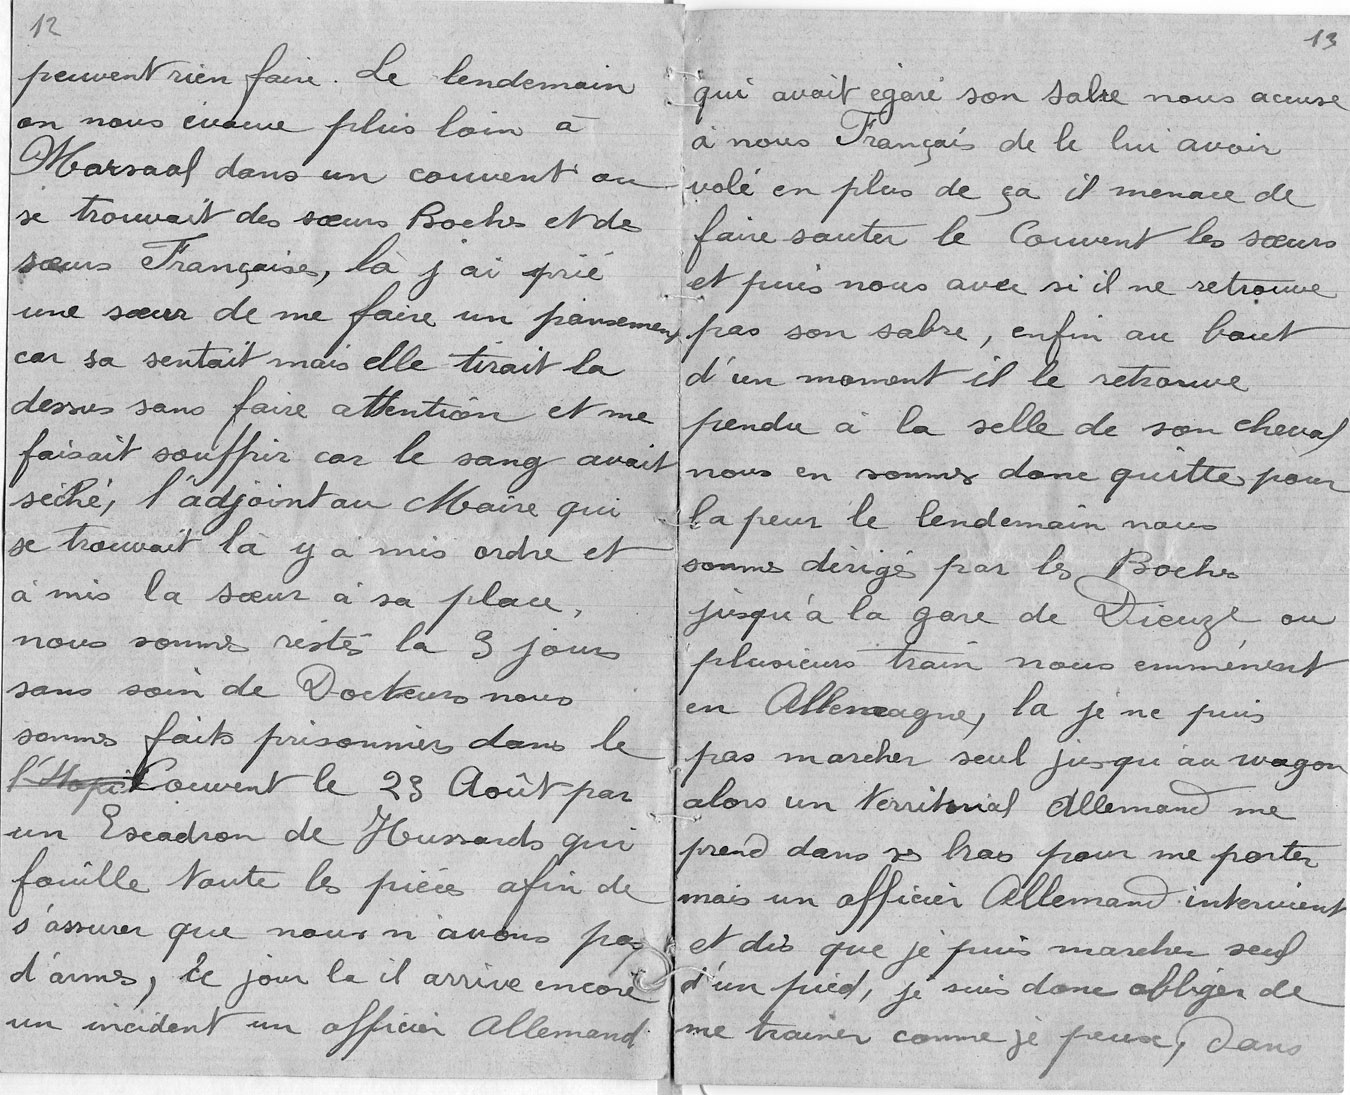 12
peuvent rien faire. Le lendemain
on nous évacue plus loin à
Marsaal dans un couvent ou
se trouvait des sœurs Boches et des
sœurs Françaises, là j'ai prié
une sœur de me faire un pansement
car sa sentait mais elle tirait la
dessus sans faire attention et me
faisait souffrir car le sang avait
séché, l'adjoint au Maire qui
se trouvait là y a mis ordre et
à mis la sœur à sa place,
nous sommes restés la 3 jours
sans soin de Docteurs nous
sommes faits prisonniers dans le
l'Hopit Couvent le 23 Août par
un Escadron de Hussards qui
fouille toute les pièces afin de
s'assurer que nous n'avons pas
d'armes, ce jour la il arrive encore
un incident un officier Allemand
13
qui avait égaré son sabre nous accuse
à nous Français de le lui avoir
volé en plus de ça il menace de
faire sauter le Couvent les sœurs
et puis nous avec si il ne retrouve
pas son sabre, enfin au bout
d'un moment il le retrouve
pendu à la selle de son cheval
nous en sommes donc quitte pour
la peur le lendemain nous
sommes dirigés par les Boches
jusqu'à la gare de Dieuze ou
plusieurs train nous emmènent
en Allemagne, la je ne puis
pas marcher seul jusqu'au wagon
alors un territorial Allemand me
prend dans ses bras pour me porter
mais un officier Allemand intervient
et dis que je puis marcher seul
d'un pied, je suis donc obliger de
me trainer comme je peux, dans